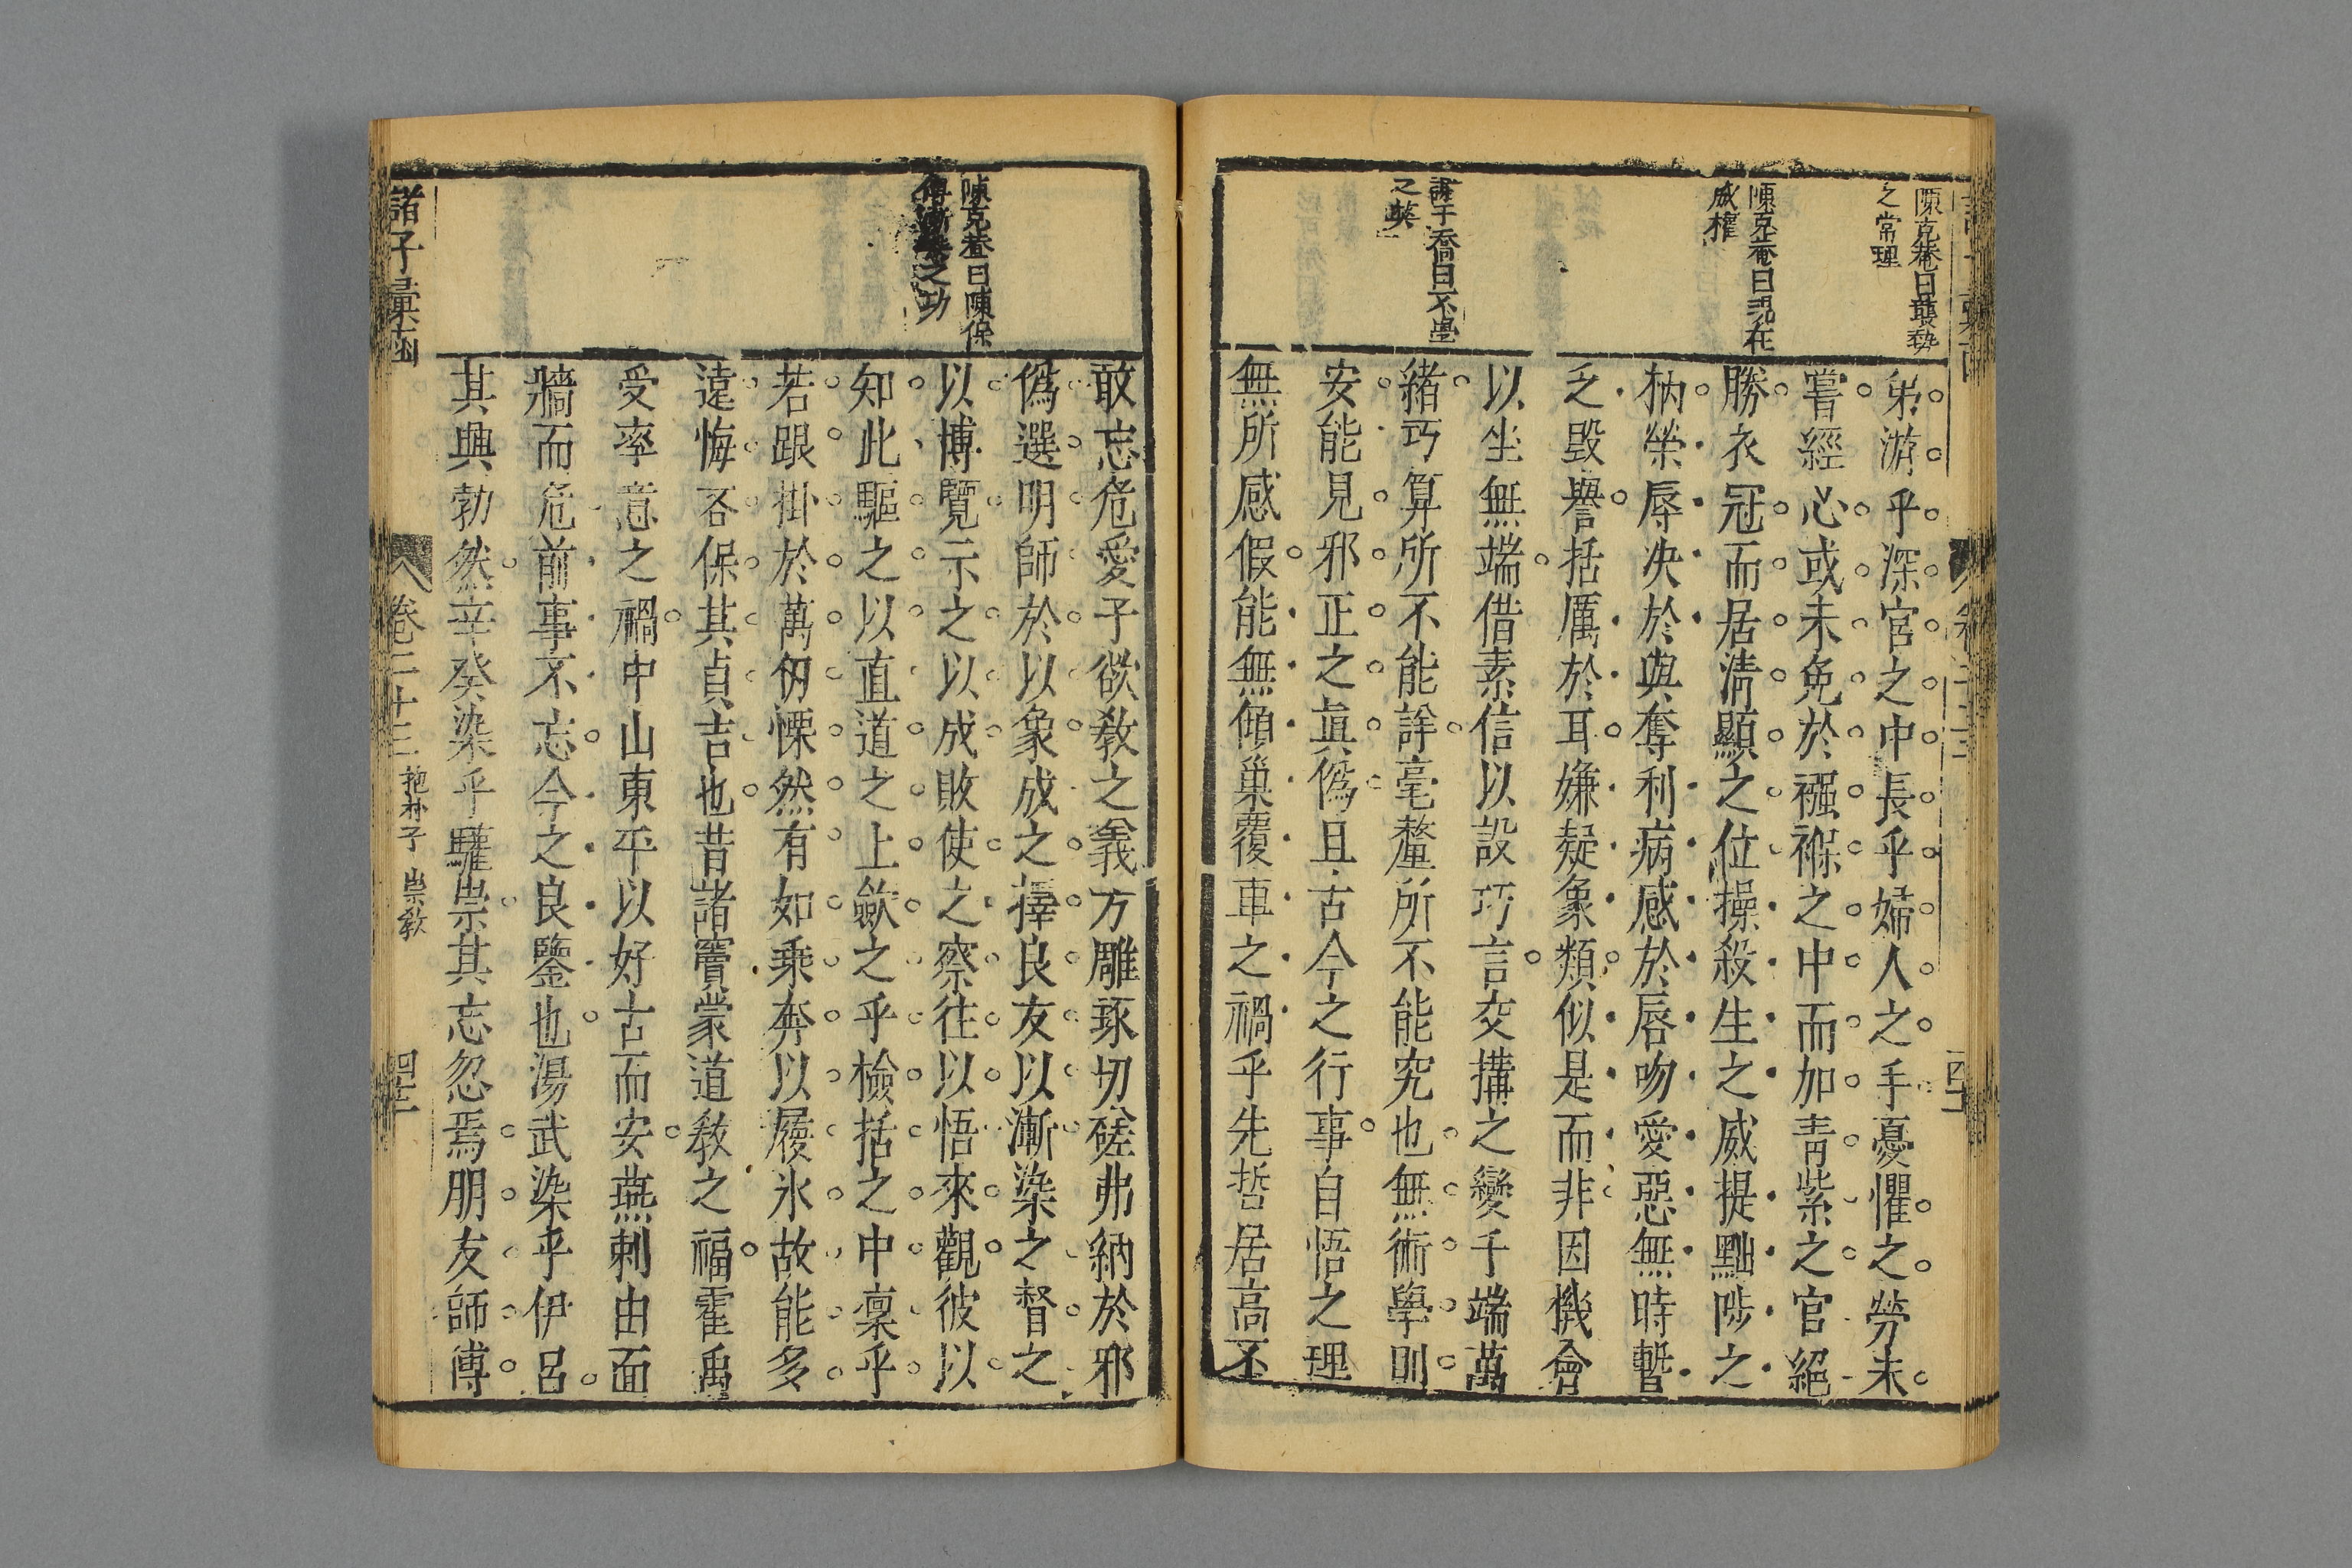 陳克菴曰襲勢
之常理
陳克菴曰謂在
威權
曰不學
之獘
弟游乎深宮之中長乎婦人之手憂懼之勞未
嘗經心或未免於襁褓之中而加青紫之官絕
勝衣冠而居清顯之位操殺生之威提黜陟之
柄榮辱決於與奪利病感於唇吻愛惡無時暫
乏毀譽括厲於耳嫌疑象類似是而非因機會
以生無端借素信以設巧言交搆之變千端萬
緒巧算所不能詳毫釐所不能究也無術學則
安能見邪正之眞僞且古今之行事自悟之理
無所感假能無傾巢覆車之禍乎先哲居高不
陳克菴曰陳保
傅漸染之功
敢忘危愛子欲教之義方雕琢切磋弗納於邪
僞選明師於以象成之擇良友以漸染之督之
以博覽示之以成敗使之察往以悟來觀彼以
知此驅之以直道之上歛之乎檢括之中稟乎
若跟掛於萬仞慄然有如乘奔以履氷故能多
遠悔吝保其貞吉也昔諸竇蒙道教之福霍禹
受率意之禍中山東平以好古而安燕剌由面
牆而危前事不忘今之良鑒也湯武染乎伊呂
其興勃然辛癸染乎驩崇其忘忽焉朋友師傅
諸子彙函
卷二十三
抱朴子
崇教